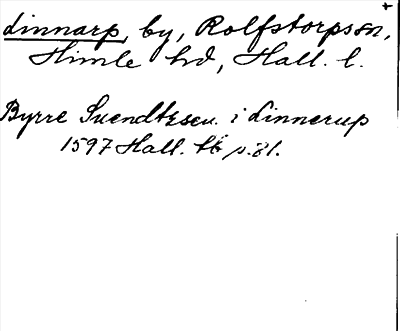 Linnarp, by, Rolfstorps sn,
Himle hd, Hall. l.
Byrre Suendtzsen i Linnerup
1597 Hall. tb p. 81.